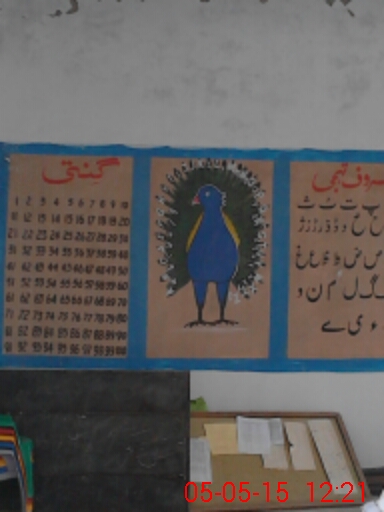 گنتی
1 2 3 4 5 6 7 8 9 10
11 12 13 14 15 16 17 18 19 20
21 22 23 24 25 26 27 28 29 30
31 32 33 34 35 36 37 38 39 40
41 42 43 44 45 46 47 48 49 50
51 52 53 54 55 56 57 58 59 60
61 62 63 64 65 66 67 68 69 70
71 72 73 74 75 76 77 78 79 80
81 82 83 84 85 86 87 88 89 90
91 92 93 94 95 96 97 98 99 100
حروف تہجی
پ ت ٹ ث
د ڈ ذ ر ڑ ز ژ
ص ض ط ظ ع غ
گ ل م ن و
ء ی ے
05-05-15 12:21